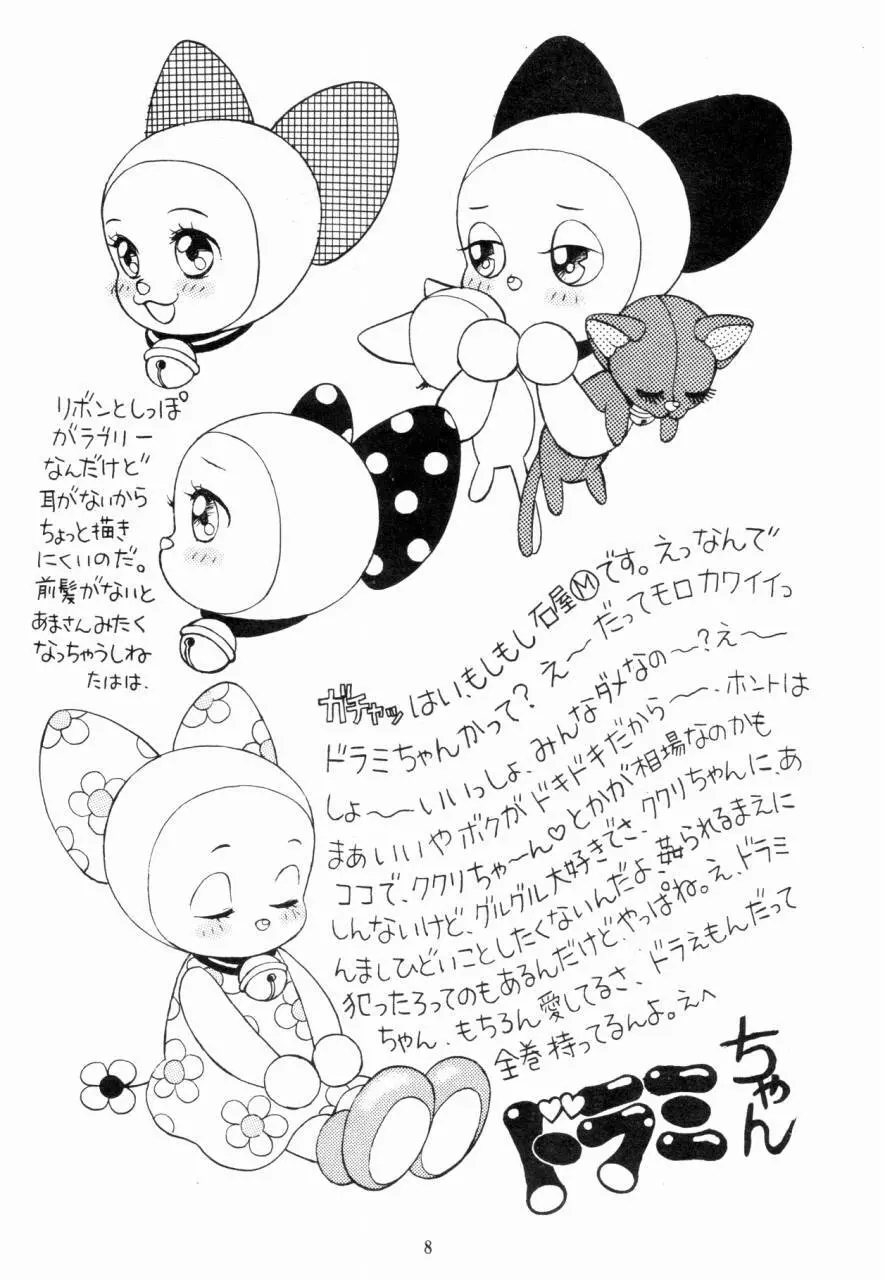 リボンとしっぽ
がラヴリー
なんだけど
耳がないから
ちょっと描き
にくいのだ。
前髪がないと
あまさんみたく
なっちゃうしね
たはは、
ガチャッ はい、もしもし 石屋Ⓜです。えっなんで
ドラミちゃんかって? え〜だってモロカワイイっ
しょ〜いいっしょ、みんなダメなの〜?え〜
まあいいやボクがドキドキだから〜、ホントは
ココで、ククリちゃ〜ん♡とかが相場なのかも
しんないけど、グルグル大好きでさ、ククリちゃんに、あ
んましひどいことしたくないんだよ、姦られるまえに
犯ったろってのもあるんだけど、やっぱね。え、ドラミ
ちゃん、もちろん愛してるさ、ドラえもんだって
全巻持ってるんよ。えへ
ドラミちゃん
8